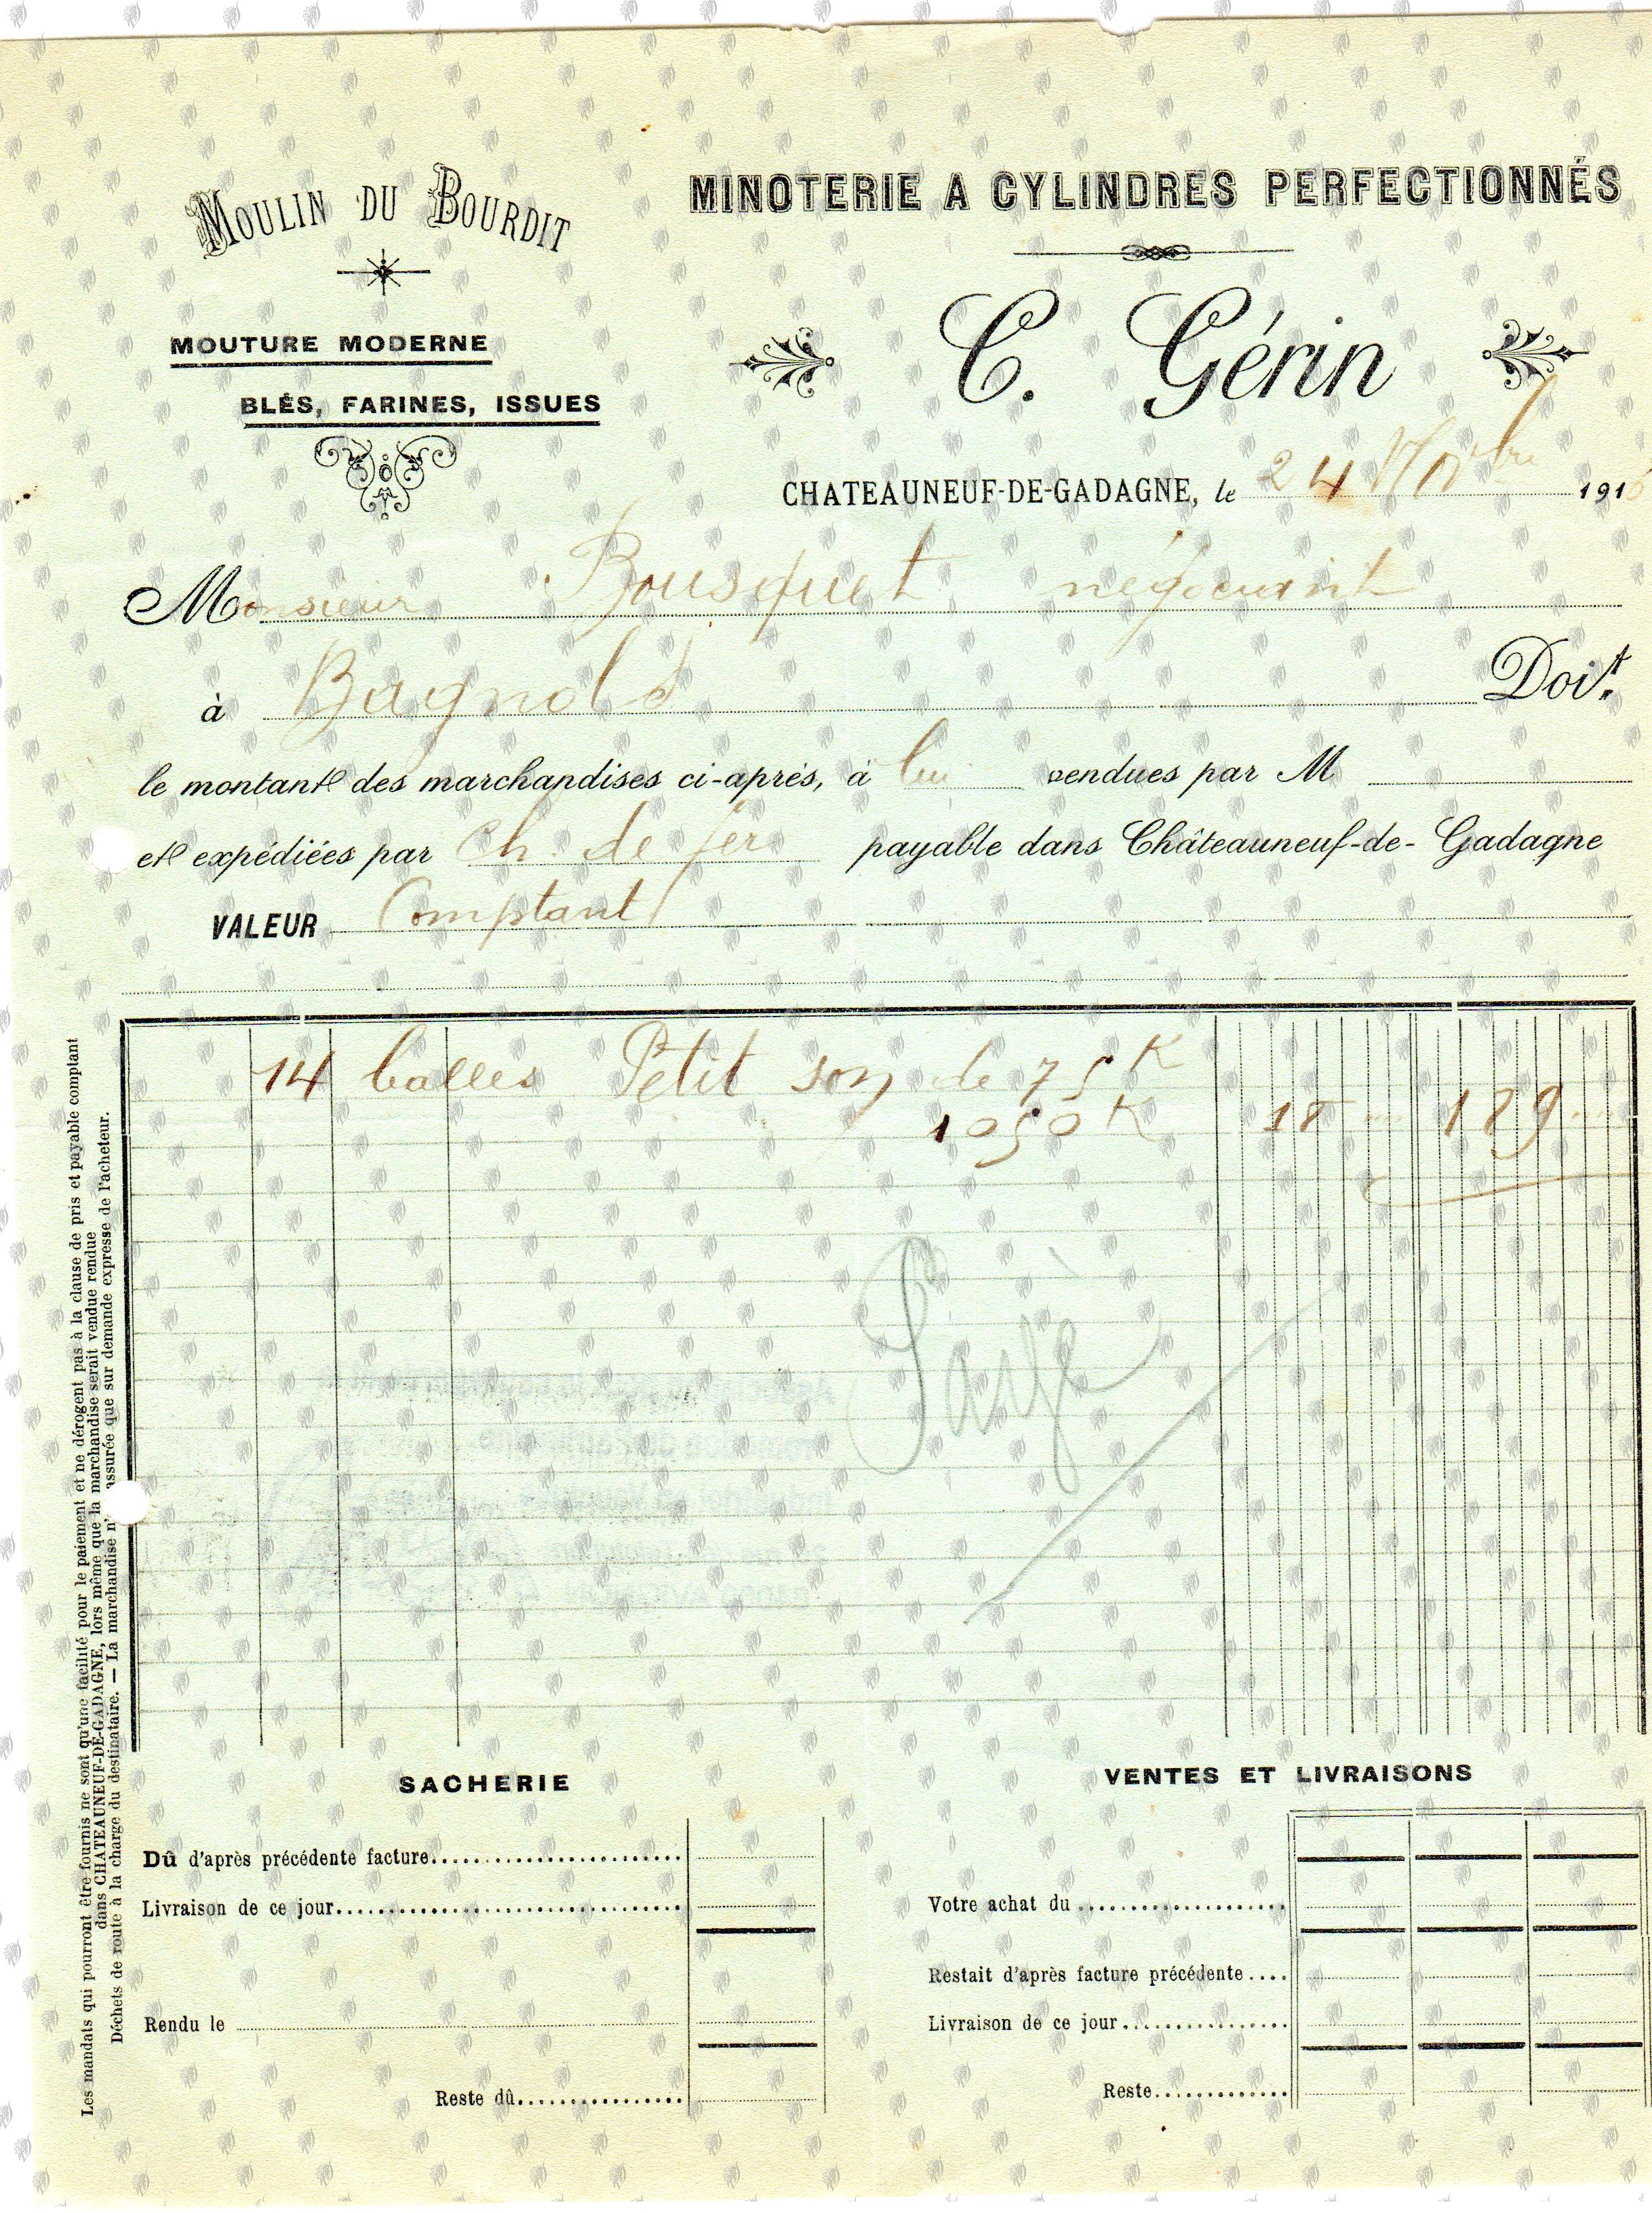 MOULIN DU BOURDIT
MOUTURE MODERNE
BLÉS, FARINES, ISSUES
MINOTERIE A CYLINDRES PERFECTIONNÉS
C. Gérin
CHATEAUNEUF-DE-GADAGNE, le 24 191
Monsieur Bousquet négociant
à Bagnols Doit
le montant des marchandises ci-après, à lui vendues par M
et expédiées par Ch. de fer payable dans Châteauneuf-de-Gadagne
VALEUR Comptant
14 balles Petit son de 75 K
1050 K 18 189
Payé
Les mandats qui pourront être fournis ne sont qu'une facilité pour le paiement et ne dérogent pas à la clause de pris et payable comptant
dans CHATEAUNEUF-DE-GADAGNE, lors même que la marchandise serait vendue rendue
Déchets de route à la charge du destinataire. — La marchandise n' assurée que sur demande expresse de l'acheteur.
SACHERIE
Dû d'après précédente facture
Livraison de ce jour
Rendu le
Reste dû
VENTES ET LIVRAISONS
Votre achat du
Restait d'après facture précédente
Livraison de ce jour
Reste